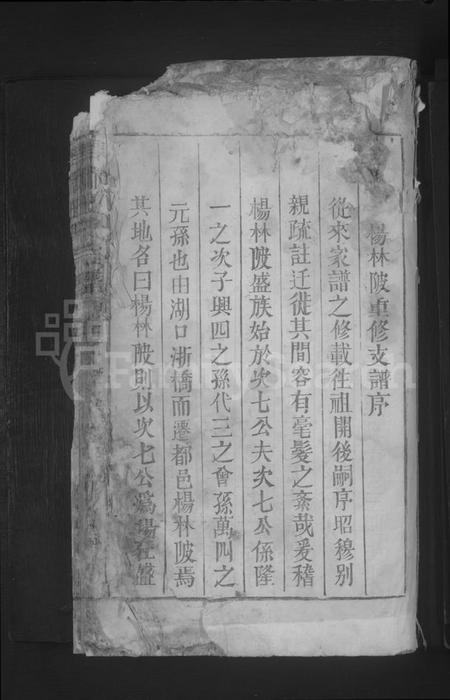 楊林陂重修支譜序
從來家譜之修載徃祖開後嗣序昭穆别
親疏註迁徙其間容有毫髮之紊哉爰稽
楊林陂盛族始於次七公夫次七公係隆
一之次子興四之孫代三之曾孫萬四之
元孫也由湖口浙橋而遷都邑楊林陂焉
其地名曰楊林陂則以次七公爲楊林盛
FamilySearch